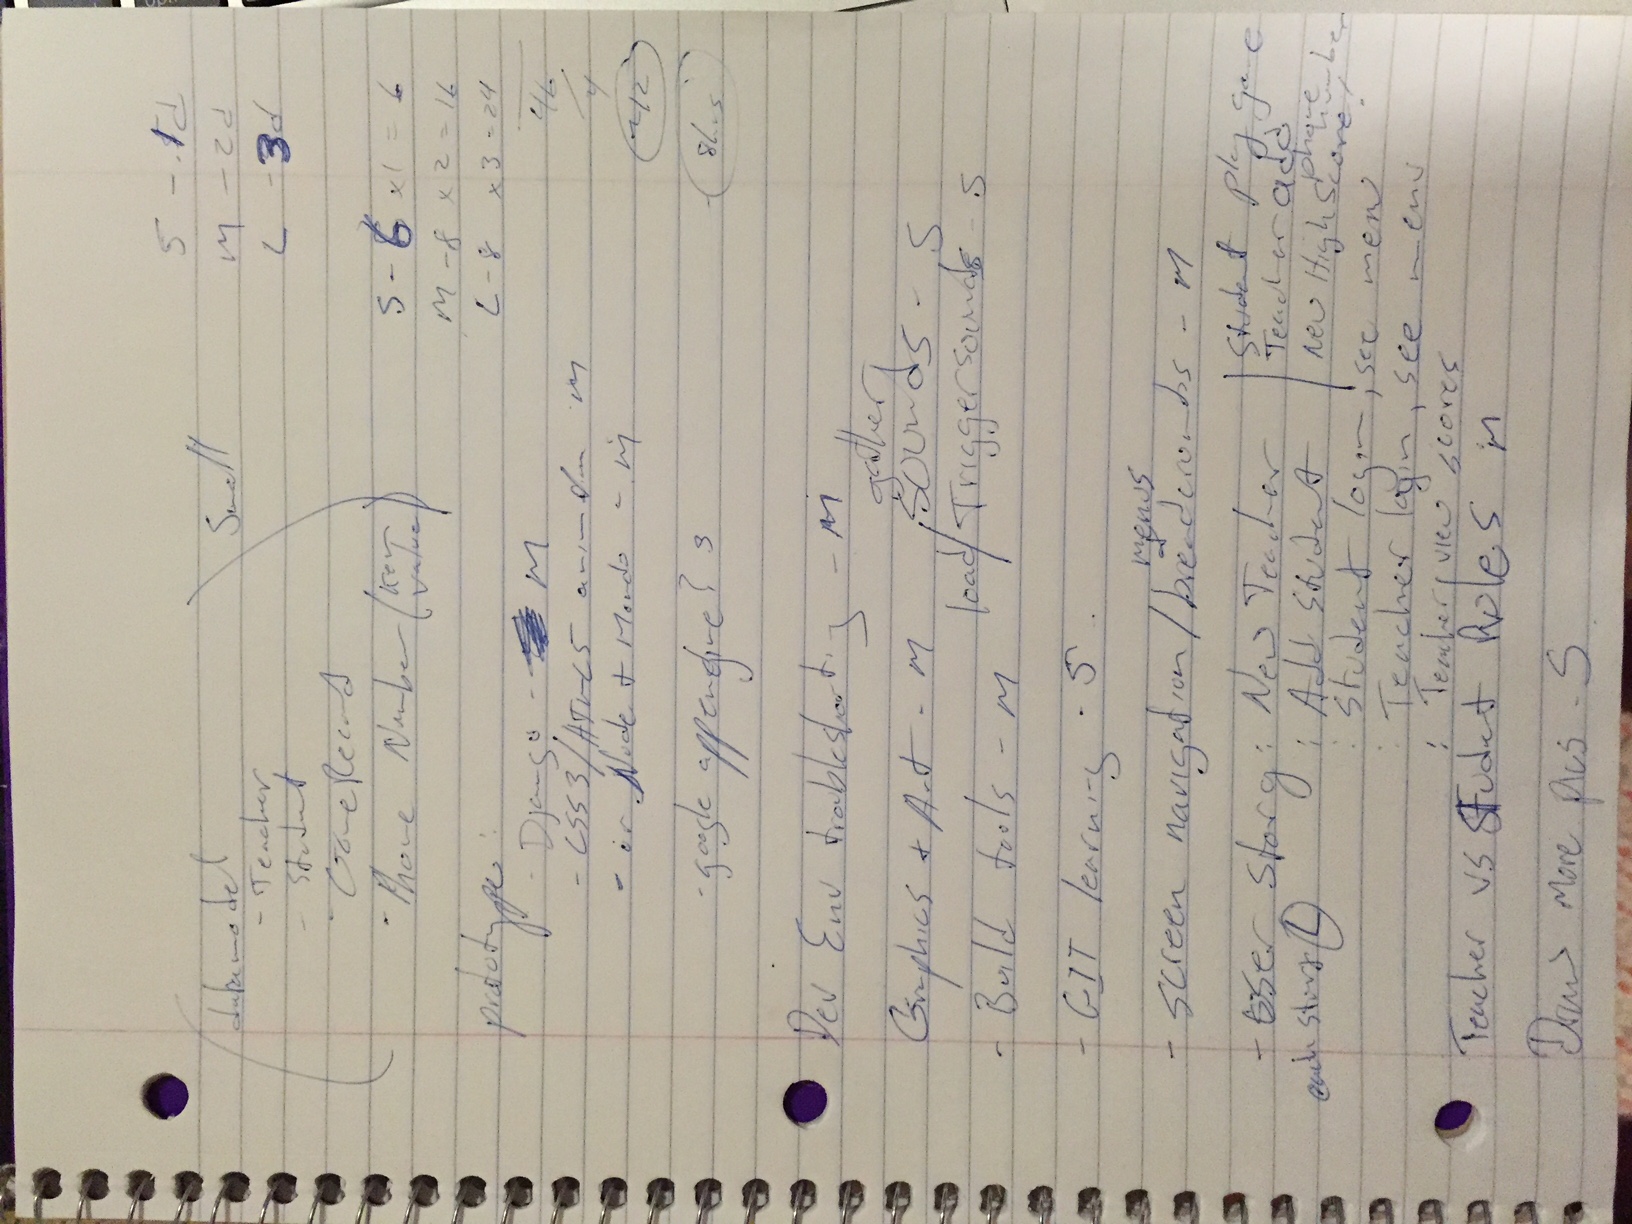 S - 1d
M - 2d
L - 3d
datamodel Small
- Teacher
- Student
- GameRecord
- Phone Number (Key value)
S - 6 x1 = 6
M - 8 x 2 = 16
L - 8 x 3 = 24
46
/4
~12
8hrs
prototype:
- Django - M
- CSS3/HTML5 animation M
- or Node + Mondo - M
- google appengine? S
Dev Env troubleshooting - M
Graphics + Art - M
gather
sounds - S
load/Trigger sounds - S
- Build tools - M
- GIT learning - S
menus
- screen navigation/breadcrumbs - M
- User story: New Teacher
each story L : Add Student
: Student login, see menu
: Teacher login, see menu
: Teacher view scores
Student play game
Teacher add phone number
New High Score!
Teacher vs Student Roles M
Draw More pics - S